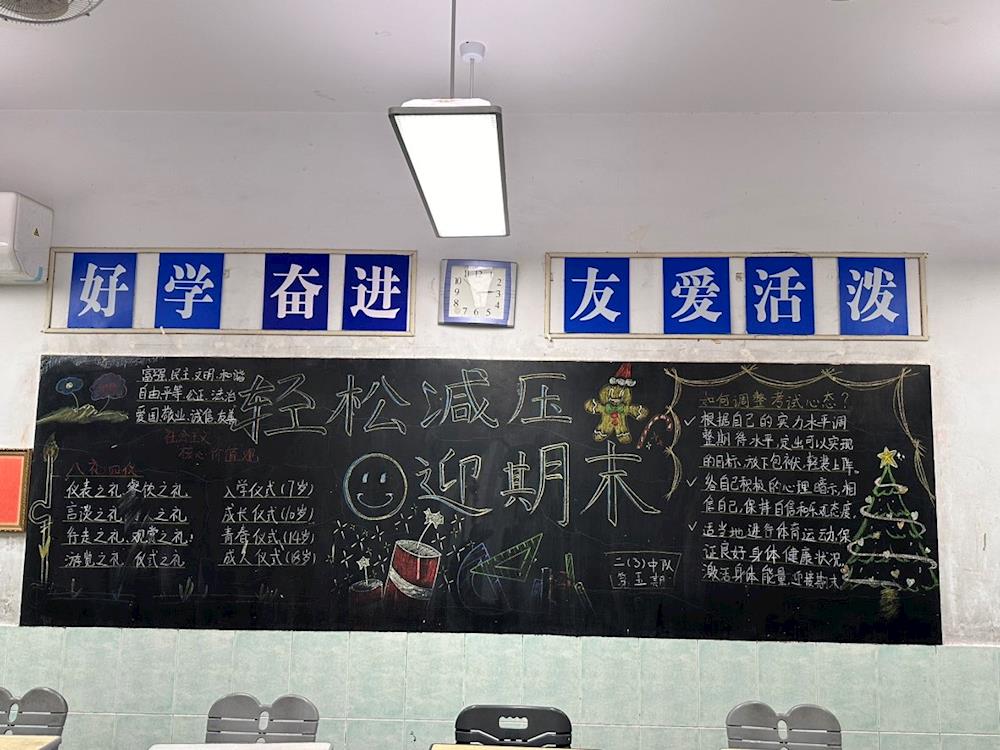 好学奋进
友爱活泼
12
11
10
2
9
3
8
4
7 6 5
富强、民主、文明、和谐
自由、平等、公正、法治
爱国、敬业、诚信、友善
社会主义
核心价值观
八礼四仪
仪表之礼 餐饮之礼
言谈之礼 人之礼
行走之礼 观赏之礼
游览之礼 仪式之礼
入学仪式(7岁)
成长仪式(10岁)
青春仪式(14岁)
成人仪式(18岁)
轻松减压
迎期末
二(3)中队
第五期
如何调整考试心态?
✓ 根据自己的实力水平调
整期待水平,定出可以实现
的目标,放下包袱,轻装上阵。
✓ 给自己积极的心理暗示,相
信自己,保持自信和乐观态度
✓ 适当地进行体育运动,保
证良好身体健康状况
激活身体能量,迎接期末